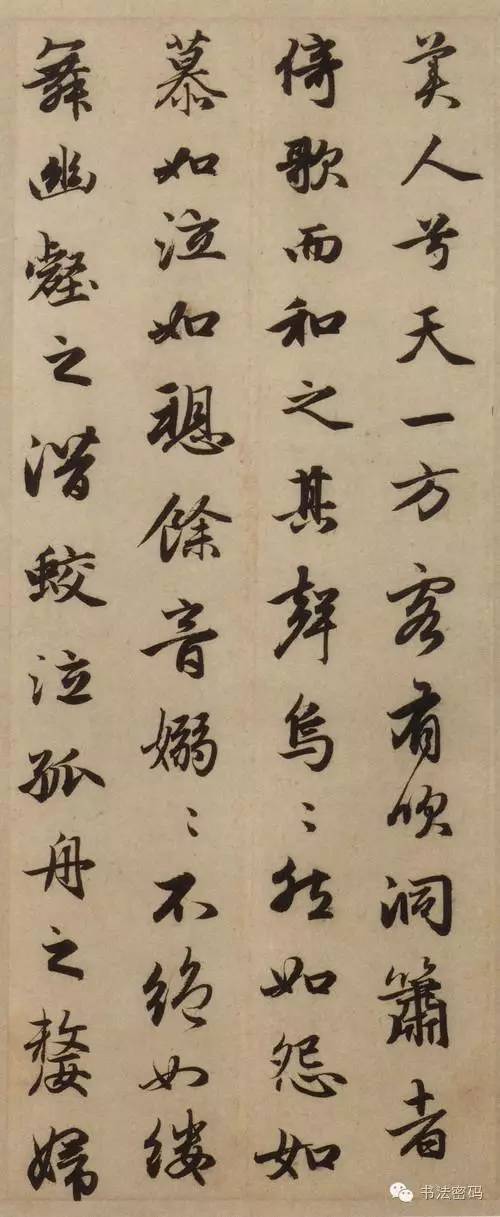 美人兮天一方客有吹洞簫者
倚歌而和之其聲烏〻然如怨如
慕如泣如愬餘音嫋〻不絶如縷
舞幽壑之潛蛟泣孤舟之嫠婦
书法密码